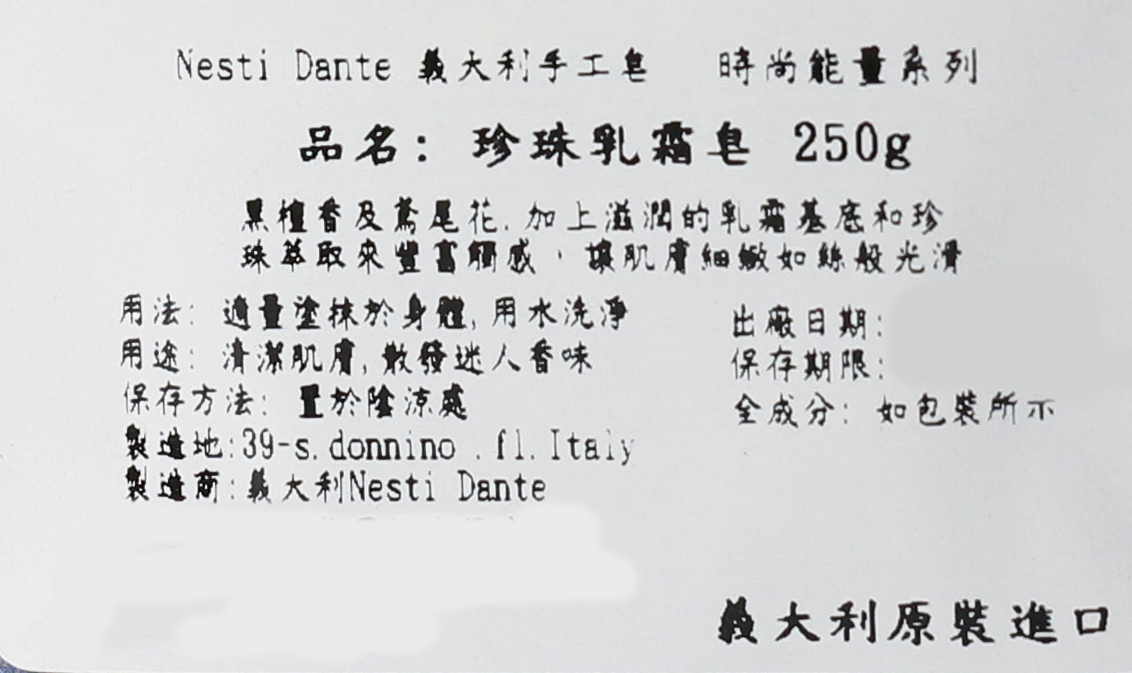 Nesti Dante 義大利手工皂 時尚能量系列
品名: 珍珠乳霜皂 250g
黑檀香及鳶尾花,加上滋潤的乳霜基底和珍
珠萃取來豐富觸感,讓肌膚細緻如絲般光滑
用法: 適量塗抹於身體,用水洗淨
用途: 清潔肌膚,散發迷人香味
保存方法: 置於陰涼處
製造地:39-s.donnino .fl.Italy
製造商:義大利Nesti Dante
出廠日期:
保存期限:
全成分: 如包裝所示
義大利原裝進口